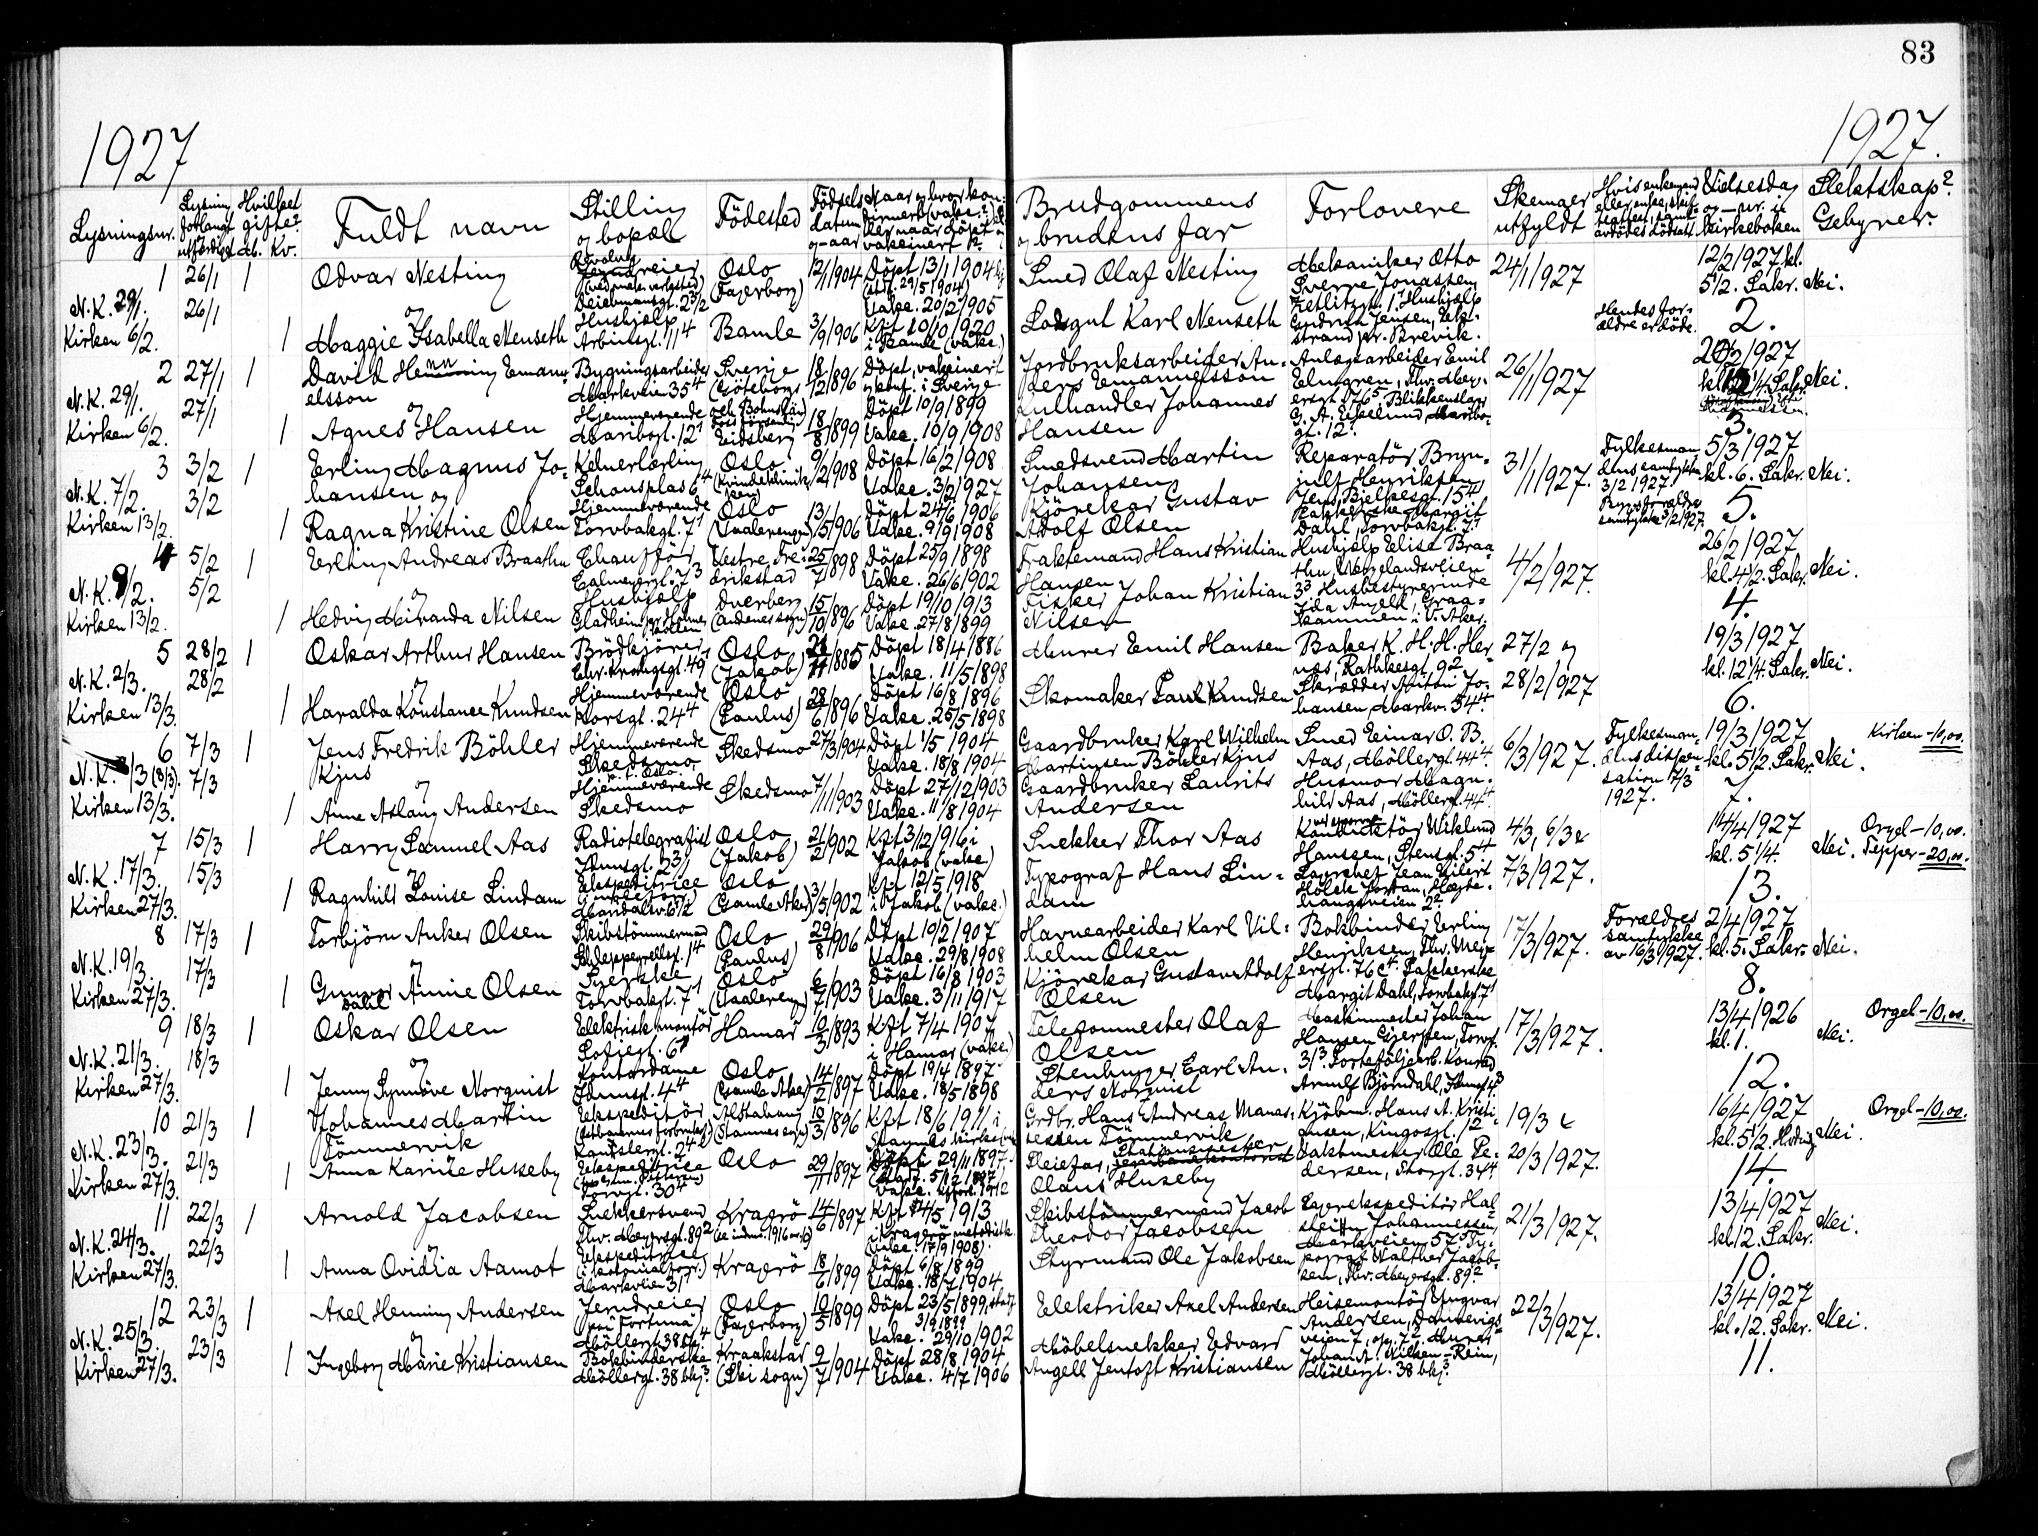 83
1927
1927.
Lysningsnr.
Lysning forlangt utferdiget
Hvilket gifte? M. Kv.
Fuldt navn
Stilling og bopæl
Födested
Födsels datum og -aar
Brudgommens og brudens far
Forlovere
Skemaer utfyldt
Vielsesdag og -nr. i kirkeboken
Slektskap? Gebyrer.
1 26/1 1 Odvar Nesting
Oslo (Fagerborg) 12/1 1904 Döpt 13/1 1904
Vakc. 20/2 1905
Smed Olaf Nesting
Mekaniker Otto Sverre Jonassen
24/1 1927
12/2 1927 kl. 5 1/2. Sakr. Nei.
N. K. 29/1.
Kirken 6/2.
26/1
og
1 Maggie Isabella Menseth
Hushjelp
Bamle 3/9 1906 Kft 10/10 1920 i Bamle (vakc.)
Losgut Karl Menseth
Hendes forældre er döde.
2.
2 27/1 1 David Henning Emanuelsson
Bygningsarbeider Markveien 35⁴
Sverje (Göteborgs och Bohuslän) 18/12 1896 Döpt, vakcinert og konf. i Sverige
Jordbruksarbeider Anders Emanuelsson
Anlægsarbeider Emil Elmgren,
26/1 1927
Nei.
N. K. 29/1.
Kirken 6/2.
27/1
og
1 Agnes Hansen
Hjemmeværende Maribogt. 12¹
Eidsberg 18/8 1899 Döpt 10/9 1899
Vakc. 10/9 1908
Kulhandler Johannes Hansen
3.
3 3/2 1 Erling Magnus Johansen og
Kelnerlærling Schousplas 6⁴
Oslo (Kvindeklinikken) 9/2 1908 Döpt 16/2 1908
Vakc. 3/2 1927
Smedsvend Martin Johansen
Reparatör Brynjulf Henriksen, Jens Bjelkesgt. 15⁴
31/1 1927.
Fylkesmandens samtykke 3/2 1927.
5/3 1927 kl. 6. Sakr. Nei.
N. K. 7/2.
Kirken 13/2.
3/2
1 Ragna Kristine Olsen
Hjemmeværende Torvbakgt. 7¹
Oslo (Vaalerengen) 13/5 1906 Döpt 24/6 1906
Vakc. 9/9 1908
Kjörekar Gustav Adolf Olsen
Pakkerske Margit Dahl, Torvbakgt. 7¹
5.
4 5/2 1 Erling Andreas Braathen
Chaufför Calmeyergt. 7³
Vestre Fredrikstad 25/7 1898 Döpt 25/9 1898
Vakc. 26/6 1902
Fraktemand Hans Kristian Hansen
Hushjælp Elise Braathen, Wergelandsveien 3³
4/2 1927.
26/2 1927 kl. 4 1/2. Sakr. Nei.
N. K. 9/2.
Kirken 13/2.
5/2
og
1 Hedvig Miranda Nilsen
Hushjælp
Dverberg (Andenes sogn) 15/10 1896 Döpt 19/10 1913
Vakc. 27/8 1899
Fisker Johan Kristian Nilsen
Husbestyrerinde
4.
5 28/2 1 Oskar Arthur Hansen
Brödkjörer, Chr. Krohgsgt. 49
Oslo (Jakob) 1885 Döpt 18/4 1886
Vakc. 11/5 1898
Murer Emil Hansen
Baker K. H. H. Hernæs, Rathkesgt. 9²
27/2 og
28/2 1927
19/3 1927 kl. 12 1/4. Sakr. Nei.
N. K. 2/3.
Kirken 13/3.
28/2
og
1 Haralda Konstance Knudsen
Hjemmeværende Korsgt. 24⁴
Oslo (Paulus) 28/6 1896 Döpt 16/8 1896
Vakc. 25/5 1898
Skomaker Paul Knudsen
Skrædder Anton Johansen, Markv. 54⁴
6.
6 7/3 1 Jens Fredrik Böhler Kjus
Hjemmeværende Skedsmo
Skedsmo 27/3 1904 Döpt 1/5 1904
Vakc. 18/8 1904
Gaardbruker Karl Wilhelm Martinsen Böhler Kjus
Smed Einar O. B. Aas, Möllergt. 44⁴
6/3 1927.
Fylkesmandens dispensation 17/3 1927.
19/3 1927 kl. 5 1/2. Sakr. Nei.
Kirken - 10,00.
N. K. /3 (8/3).
Kirken 13/3.
7/3
og
1 Anne Aslaug Andersen
Hjemmeværende Skedsmo
Skedsmo 7/11 1903 Döpt 27/12 1903
Vakc. 11/8 1904
Gaardbruker Laurits Andersen
Husmor Magnhild Aas, Möllergt. 44⁴
7.
7 15/3 1 Harry Samuel Aas
Radiotelegrafist
Oslo (Jakob) 21/2 1902 Kft 3/12 1916 i Jakob (vakc.)
Snekker Thor Aas
Konduktör Wiklund Hanssen, Stensgt. 5⁴
4/3, 6/3 &
7/3 1927.
14/4 1927 kl. 5 1/4. Nei.
Orgel - 10,00.
Tepper - 20,00.
N. K. 17/3.
Kirken 27/3.
15/3
og
1 Ragnhild Louise Lindam
Ekspeditrice
Oslo (Gamle Aker) 3/5 1902 Kft 12/5 1918 i Jakob (vakc.)
Typograf Hans Lindam
13.
8 17/3 1 Torbjörn Anker Olsen
Skibstömmermand Schleppegrellsgt. 1⁴
Oslo (Paulus) 29/8 1906 Döpt 10/2 1907
Vakc. 29/8 1908
Havnearbeider Karl Vilhelm Olsen
Bokbinder Erling Henriksen,
17/3 1927.
Forældres samtykke av 16/3 1927.
2/4 1927 kl. 5. Sakr. Nei.
N. K. 19/3.
Kirken 27/3.
17/3
og
1 Gunvor Annie Olsen
Syerske Torvbakgt. 7¹
Oslo (Vaalerengen) 6/7 1903 Döpt 16/8 1903
Vakc. 3/11 1917
Kjörekar Gustav Adolf Olsen
Pakkerske Margit Dahl, Torvbakgt. 7¹
8.
9 18/3 1 Oskar Dahl Olsen
Elektriskmontör Sofiegt. 6
Hamar 10/3 1893 Kft 7/4 1907 i Hamar (vakc.)
Telefonmester Olaf Olsen
Maskinmester Johan Hansen Gjerpen,
17/3 1927.
13/4 1926 kl. 1. Nei.
Orgel - 10,00.
N. K. 21/3.
Kirken 27/3.
18/3
og
1 Jenny Synnöve Norquist
Kontordame 4⁴
Oslo (Gamle Aker) 14/2 1897 Döpt 19/4 1897
Vakc. 18/5 1898
Stenhugger Carl Anders Norquist
Porteföljearb. Konrad Arnulf Björndahl,
12.
10 21/3 1 Johannes Martin Tömmervik
Ekspeditör
Alstahaug (Stamnes sogn) 10/3 1896 Kft 18/6 1911 i
Grdbr. Hans Andreas Manassessen Tömmervik
Kjöbm. Hans A. Kristiansen, Kingosgt. 1²
19/3 &
20/3 1927.
16/4 1927 kl. 5 1/2. Nei.
Orgel - 10,00.
N. K. 23/3.
Kirken 27/3.
21/3
1 Anna Karine Huseby
Ekspeditrice Torvgt. 30⁴
Oslo 29/11 1897
Pleiefar, Stationsmester Olaus Huseby
Vaktmester Ole Pedersen, Storgt. 34⁴
14.
11 22/3 1 Arnold Jacobsen
Snekkersvend
Kragerö 14/6 1897 Kft 4/5 1913 i Kragerö metodistk. (Vakc. 17/9 1908).
Skibstömmermand Jacob Theodor Jacobsen
Lagerekspeditör Halstein Johannessen, Markveien 57⁵
21/3 1927.
13/4 1927 kl. 12. Sakr. Nei.
N. K. 24/3.
Kirken 27/3.
22/3
og
1 Anna Ovidia Aamot
Ekspeditrice Markveien 31
Kragerö 18/6 1899 Döpt 6/8 1899
Vakc. 18/7 1904
Styrmand Ole Jakobsen
Typograf Walther Jacobsen, Thv. Meyersgt. 89²
10.
12 23/3 1 Axel Henning Andersen
Jerndreier (paa "Fortuna") Möllergt. 38
Oslo (Fagerborg) 10/5 1899 Döpt 23/5 1899, stadf. 3/9 1899
Vakc. 29/10 1902
Elektriker Axel Andersen
Heisemontör Yngvar Andersen, Dannevigsveien 7, opg. 7²
22/3 1927.
13/4 1927 kl. 12. Sakr. Nei.
N. K. 25/3.
Kirken 27/3.
23/3
og
1 Ingeborg Marie Kristiansen
Bokbinderske Möllergt. 38 bkg.³
Kraakstad (Ski sogn) 9/7 1904 Döpt 28/8 1904
Vakc. 4/7 1906
Möbelsnekker Edvard Angell Jentoft Kristiansen
Möllergt. 38 bkg.³
11.